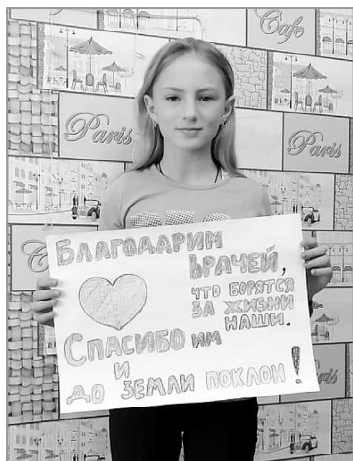 Cafe
Paris
Paris
БЛАГОДАРИМ
ВРАЧЕЙ,
ЧТО БОРЯТСЯ
ЗА ЖИЗНИ
НАШИ.
СПАСИБО ИМ
И
ДО ЗЕМЛИ ПОКЛОН!